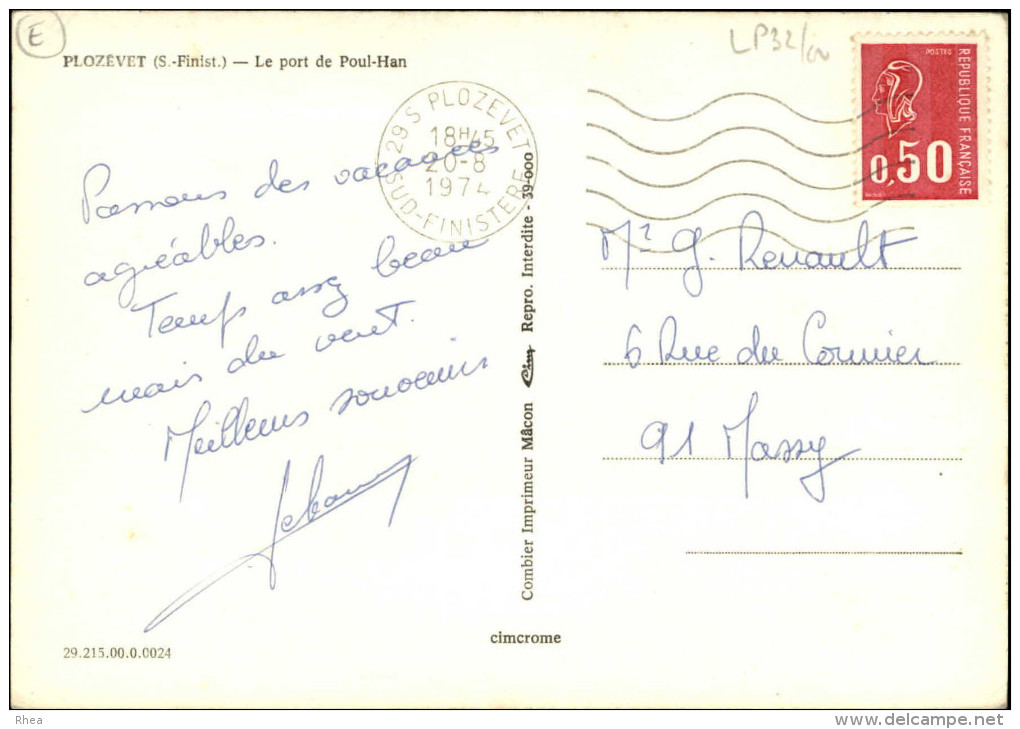 E
LP32/
PLOZÉVET (S.-Finist.) — Le port de Poul-Han
29 S PLOZEVET
18H45
20-8
1974
SUD-FINISTERE
POSTES
REPUBLIQUE FRANÇAISE
0,50
Passons des vacances
agréables.
Temps assez beau
mais du vent.
Meilleurs souvenirs
Mr G. Renault
6 Rue du Cormier
91 Massy
Combier Imprimeur Mâcon Cim Repro. Interdite - 39-000
cimcrome
29.215.00.0.0024
Rhea
www.delcampe.net